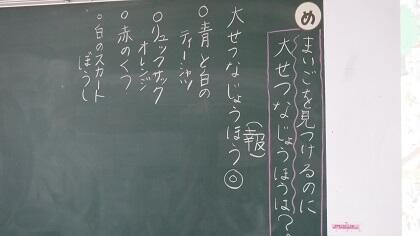 め
まいごを見つけるのに
大せつなじょうほうは?
大せつなじょうほう◎
(報)
○青と白の
ティーシャツ
○リュックサック
オレンジ
○赤のくつ
○白のスカート
ぼうし